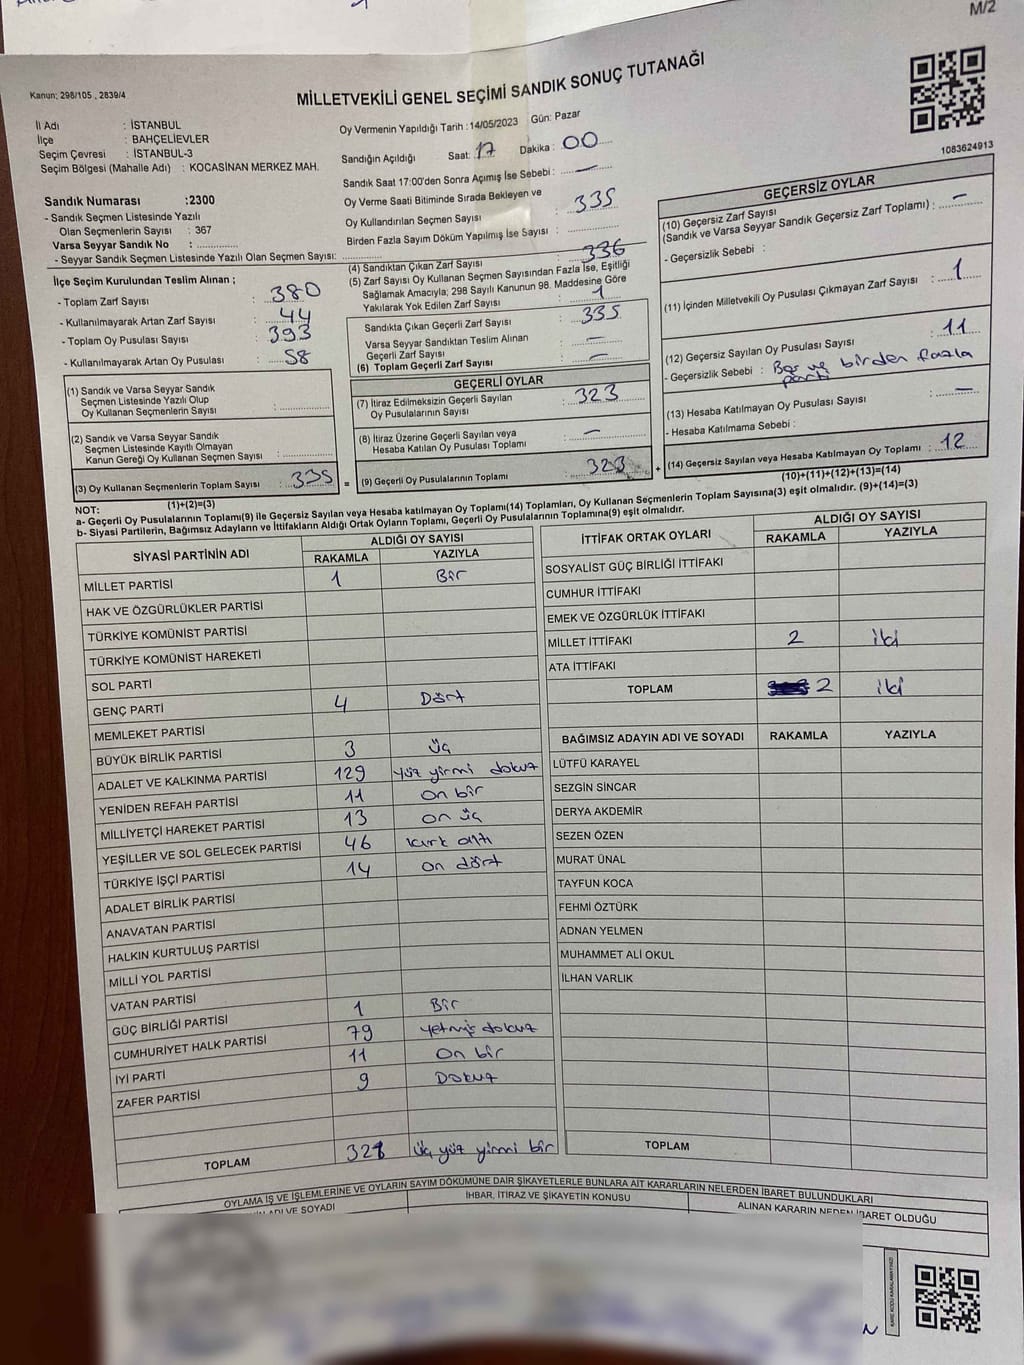 M/2
Kanun; 298/105 , 2839/4
MİLLETVEKİLİ GENEL SEÇİMİ SANDIK SONUÇ TUTANAĞI
1083624913
İl Adı : İSTANBUL
İlçe : BAHÇELİEVLER
Seçim Çevresi : İSTANBUL-3
Seçim Bölgesi (Mahalle Adı) : KOCASİNAN MERKEZ MAH.
Sandık Numarası :2300
- Sandık Seçmen Listesinde Yazılı
Olan Seçmenlerin Sayısı : 367
Varsa Seyyar Sandık No :
- Seyyar Sandık Seçmen Listesinde Yazılı Olan Seçmen Sayısı:
Oy Vermenin Yapıldığı Tarih : 14/05/2023 Gün: Pazar
Sandığın Açıldığı Saat: 17 Dakika : 00
Sandık Saat 17:00'den Sonra Açımış İse Sebebi : —
Oy Verme Saati Bitiminde Sırada Bekleyen ve
Oy Kullandırılan Seçmen Sayısı : 335
Birden Fazla Sayım Döküm Yapılmış İse Sayısı :
İlçe Seçim Kurulundan Teslim Alınan ;
- Toplam Zarf Sayısı : 380
- Kullanılmayarak Artan Zarf Sayısı : 44
- Toplam Oy Pusulası Sayısı : 393
- Kullanılmayarak Artan Oy Pusulası : 58
(1) Sandık ve Varsa Seyyar Sandık
Seçmen Listesinde Yazılı Olup
Oy Kullanan Seçmenlerin Sayısı :
(2) Sandık ve Varsa Seyyar Sandık
Seçmen Listesinde Kayıtlı Olmayan
Kanun Gereği Oy Kullanan Seçmen Sayısı :
(3) Oy Kullanan Seçmenlerin Toplam Sayısı : 335
(1)+(2)=(3)
(4) Sandıktan Çıkan Zarf Sayısı 336
(5) Zarf Sayısı Oy Kullanan Seçmen Sayısından Fazla İse, Eşitliği
Sağlamak Amacıyla; 298 Sayılı Kanunun 98. Maddesine Göre
Yakılarak Yok Edilen Zarf Sayısı : 1
Sandıkta Çıkan Geçerli Zarf Sayısı : 335
Varsa Seyyar Sandıktan Teslim Alınan
Geçerli Zarf Sayısı : —
(6) Toplam Geçerli Zarf Sayısı : —
GEÇERLİ OYLAR
(7) İtiraz Edilmeksizin Geçerli Sayılan
Oy Pusulalarının Sayısı : 323
(8) İtiraz Üzerine Geçerli Sayılan veya
Hesaba Katılan Oy Pusulası Toplamı : —
= (9) Geçerli Oy Pusulalarının Toplamı : 323
GEÇERSİZ OYLAR
(10) Geçersiz Zarf Sayısı
(Sandık ve Varsa Seyyar Sandık Geçersiz Zarf Toplamı) : —
- Geçersizlik Sebebi :
(11) İçinden Milletvekili Oy Pusulası Çıkmayan Zarf Sayısı : 1
(12) Geçersiz Sayılan Oy Pusulası Sayısı : 11
- Geçersizlik Sebebi : Boş ve birden fazla
parti
(13) Hesaba Katılmayan Oy Pusulası Sayısı : —
- Hesaba Katılmama Sebebi :
+ (14) Geçersiz Sayılan veya Hesaba Katılmayan Oy Toplamı : 12
(10)+(11)+(12)+(13)=(14)
NOT:
a- Geçerli Oy Pusulalarının Toplamı(9) ile Geçersiz Sayılan veya Hesaba katılmayan Oy Toplamı(14) Toplamları, Oy Kullanan Seçmenlerin Toplam Sayısına(3) eşit olmalıdır. (9)+(14)=(3)
b- Siyasi Partilerin, Bağımsız Adayların ve İttifakların Aldığı Ortak Oyların Toplamı, Geçerli Oy Pusulalarının Toplamına(9) eşit olmalıdır.
SİYASİ PARTİNİN ADI ALDIĞI OY SAYISI
RAKAMLA YAZIYLA
MİLLET PARTİSİ 1 Bir
HAK VE ÖZGÜRLÜKLER PARTİSİ
TÜRKİYE KOMÜNİST PARTİSİ
TÜRKİYE KOMÜNİST HAREKETİ
SOL PARTİ
GENÇ PARTİ 4 Dört
MEMLEKET PARTİSİ
BÜYÜK BİRLİK PARTİSİ 3 Üç
ADALET VE KALKINMA PARTİSİ 129 yüz yirmi dokuz
YENİDEN REFAH PARTİSİ 11 on bir
MİLLİYETÇİ HAREKET PARTİSİ 13 on üç
YEŞİLLER VE SOL GELECEK PARTİSİ 46 kırk altı
TÜRKİYE İŞÇİ PARTİSİ 14 on dört
ADALET BİRLİK PARTİSİ
ANAVATAN PARTİSİ
HALKIN KURTULUŞ PARTİSİ
MİLLİ YOL PARTİSİ
VATAN PARTİSİ
GÜÇ BİRLİĞİ PARTİSİ 1 Bir
CUMHURİYET HALK PARTİSİ 79 yetmiş dokuz
İYİ PARTİ 11 On bir
ZAFER PARTİSİ 9 Dokuz
TOPLAM 321 üç yüz yirmi bir
İTTİFAK ORTAK OYLARI ALDIĞI OY SAYISI
RAKAMLA YAZIYLA
SOSYALİST GÜÇ BİRLİĞİ İTTİFAKI
CUMHUR İTTİFAKI
EMEK VE ÖZGÜRLÜK İTTİFAKI
MİLLET İTTİFAKI 2 iki
ATA İTTİFAKI
TOPLAM 2 iki
BAĞIMSIZ ADAYIN ADI VE SOYADI RAKAMLA YAZIYLA
LÜTFÜ KARAYEL
SEZGİN SİNCAR
DERYA AKDEMİR
SEZEN ÖZEN
MURAT ÜNAL
TAYFUN KOCA
FEHMİ ÖZTÜRK
ADNAN YELMEN
MUHAMMET ALİ OKUL
İLHAN VARLIK
TOPLAM
OYLAMA İŞ VE İŞLEMLERİNE VE OYLARIN SAYIM DÖKÜMÜNE DAİR ŞİKAYETLERLE BUNLARA AİT KARARLARIN NELERDEN İBARET BULUNDUKLARI
ADI VE SOYADI İHBAR, İTİRAZ VE ŞİKAYETİN KONUSU ALINAN KARARIN NEDEN İBARET OLDUĞU